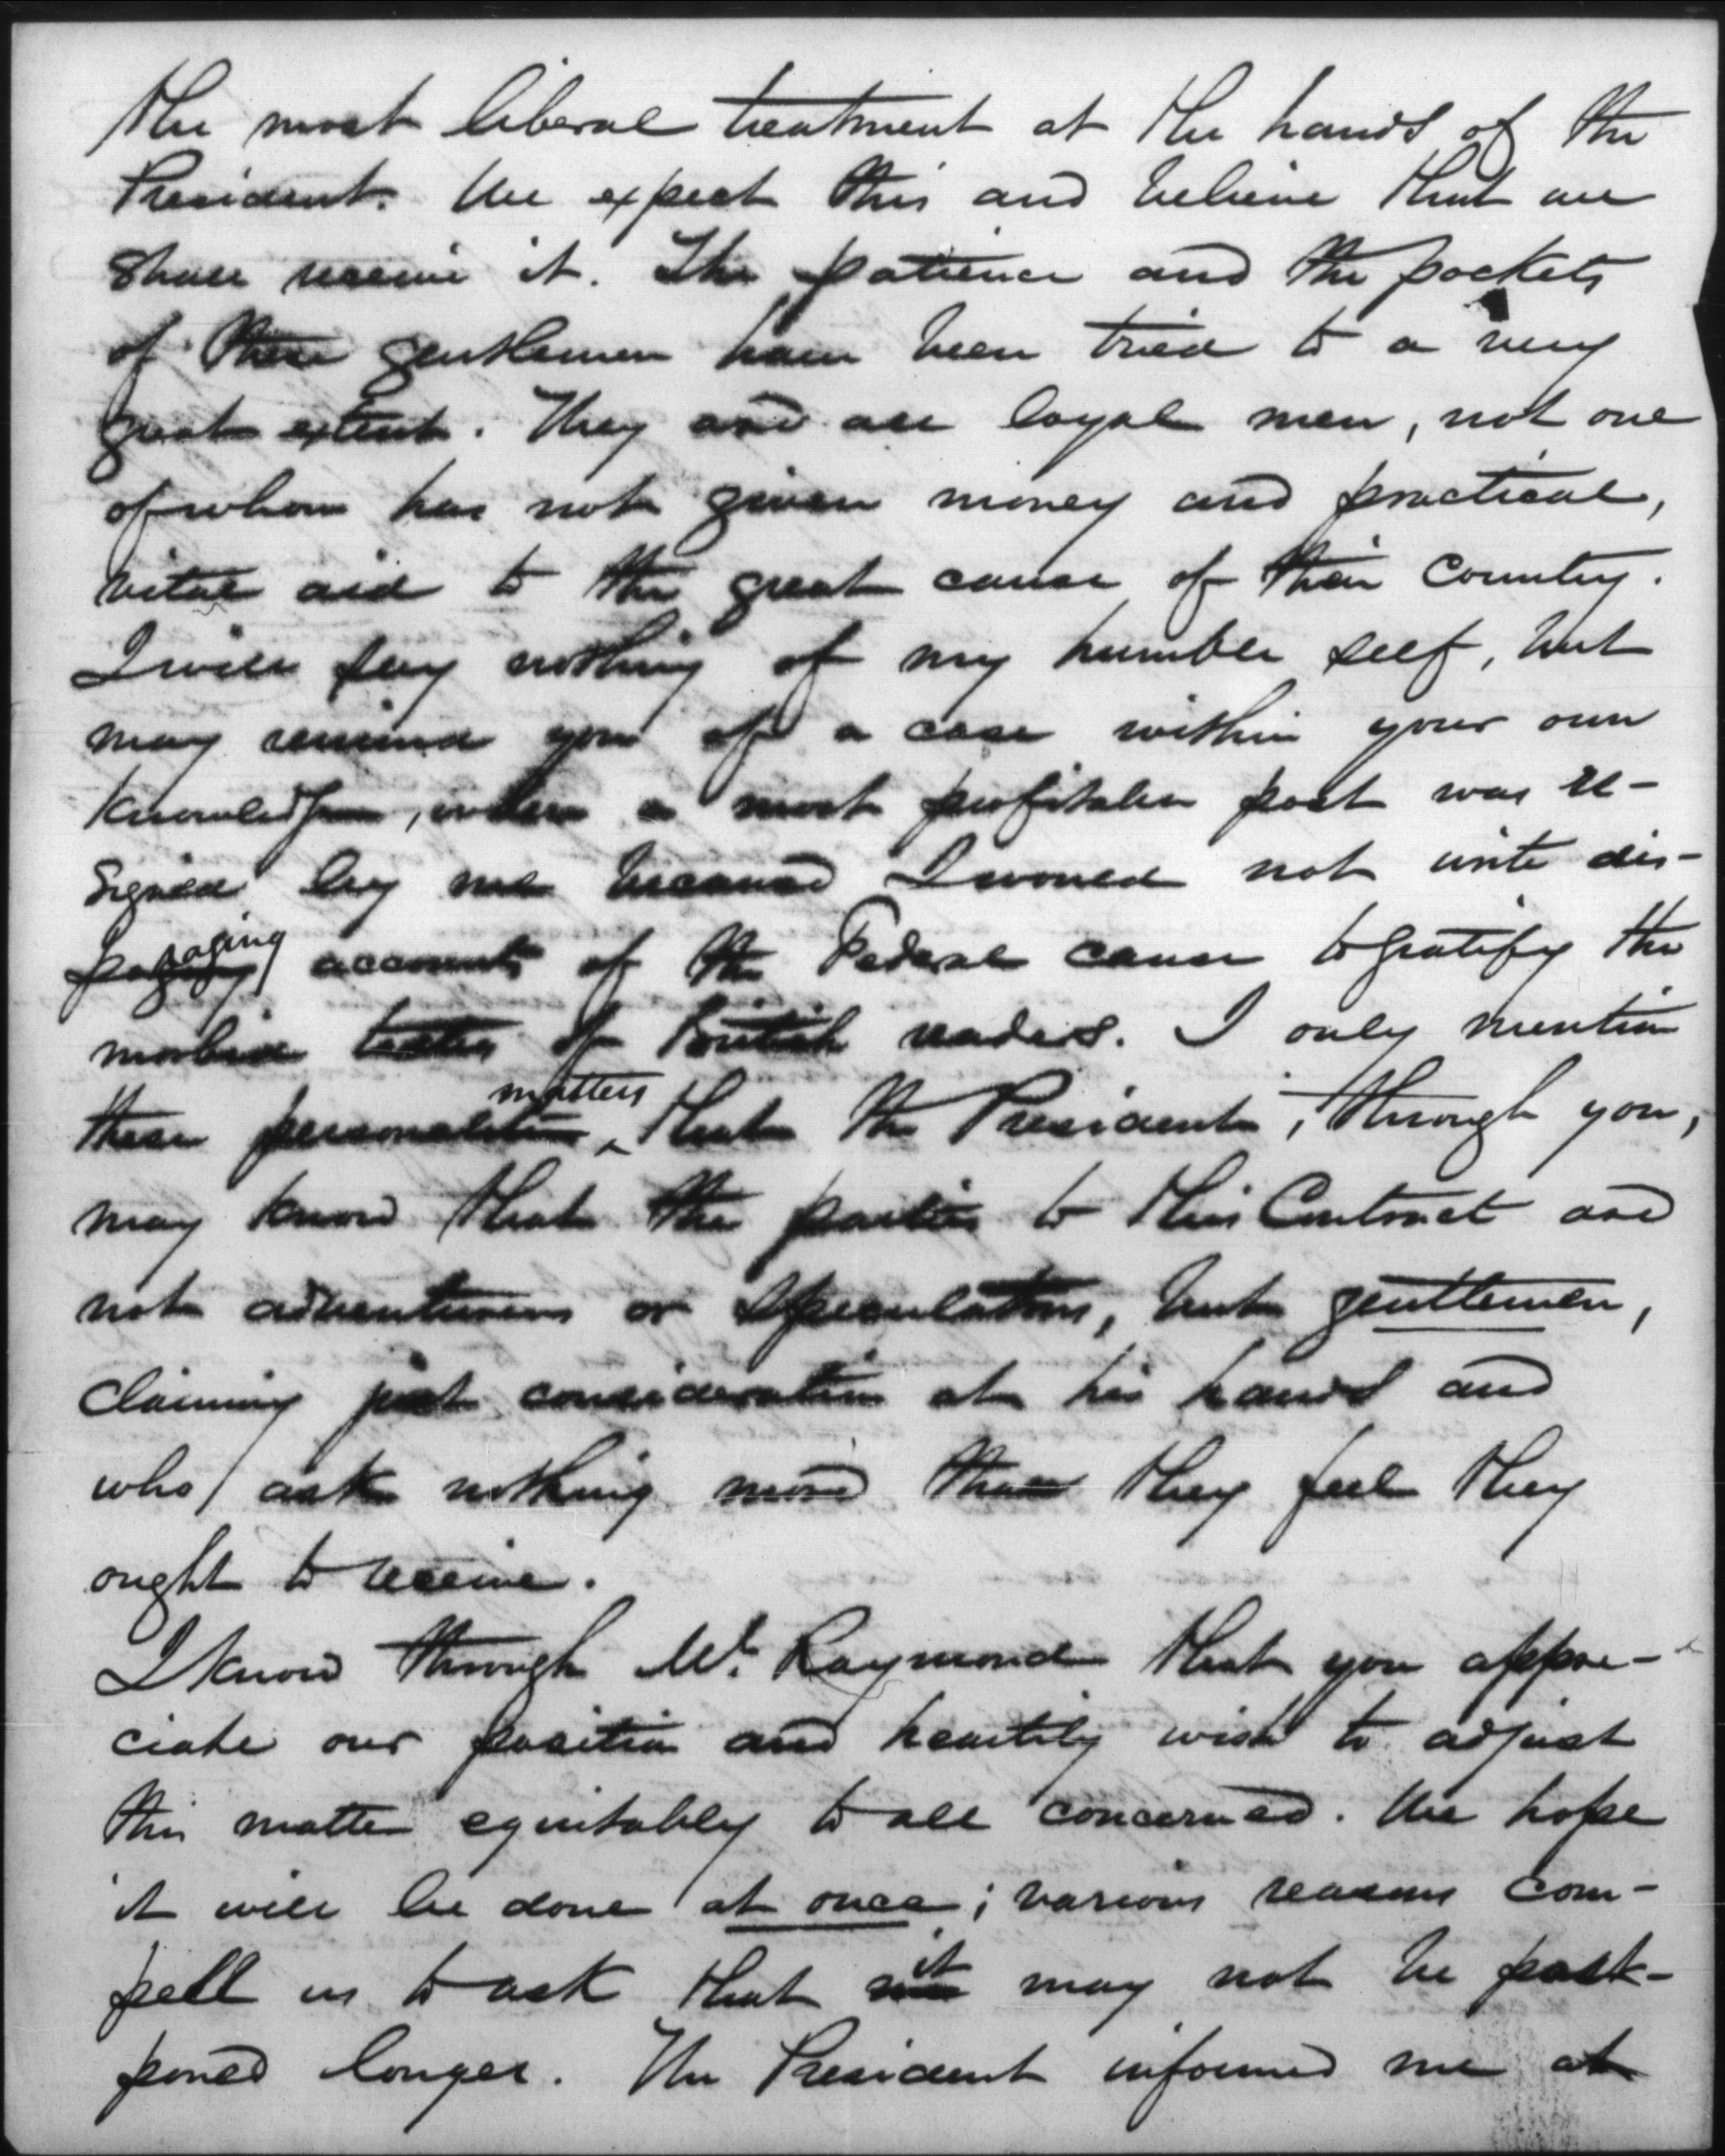 the most liberal treatment at the hands of the
President. We expect this and believe that we
shall receive it. The patience and the pockets
of these gentlemen have been tried to a very
great extent. They are all loyal men, not one
of whom has not given money and practical,
vital aid to the great cause of their country.
I will say nothing of my humble self, but
may remind you of a case within your own
knowledge, where a most profitable post was re-
signed by me because I would not write dis-
paraging accounts of the Federal cause to gratify the
morbid tastes of British readers. I only mention
these personal matters that the President, through you,
may know that the parties to this Contract are
not adventurers or speculators, but gentlemen,
claiming just consideration at his hands and
who ask nothing more than they feel they
ought to receive.
I know through Mr. Raymond that you appre-
ciate our position and heartily wish to adjust
this matter equitably to all concerned. We hope
it will be done at once; various reasons com-
pell us to ask that it may not be post-
poned longer. The President informed me at